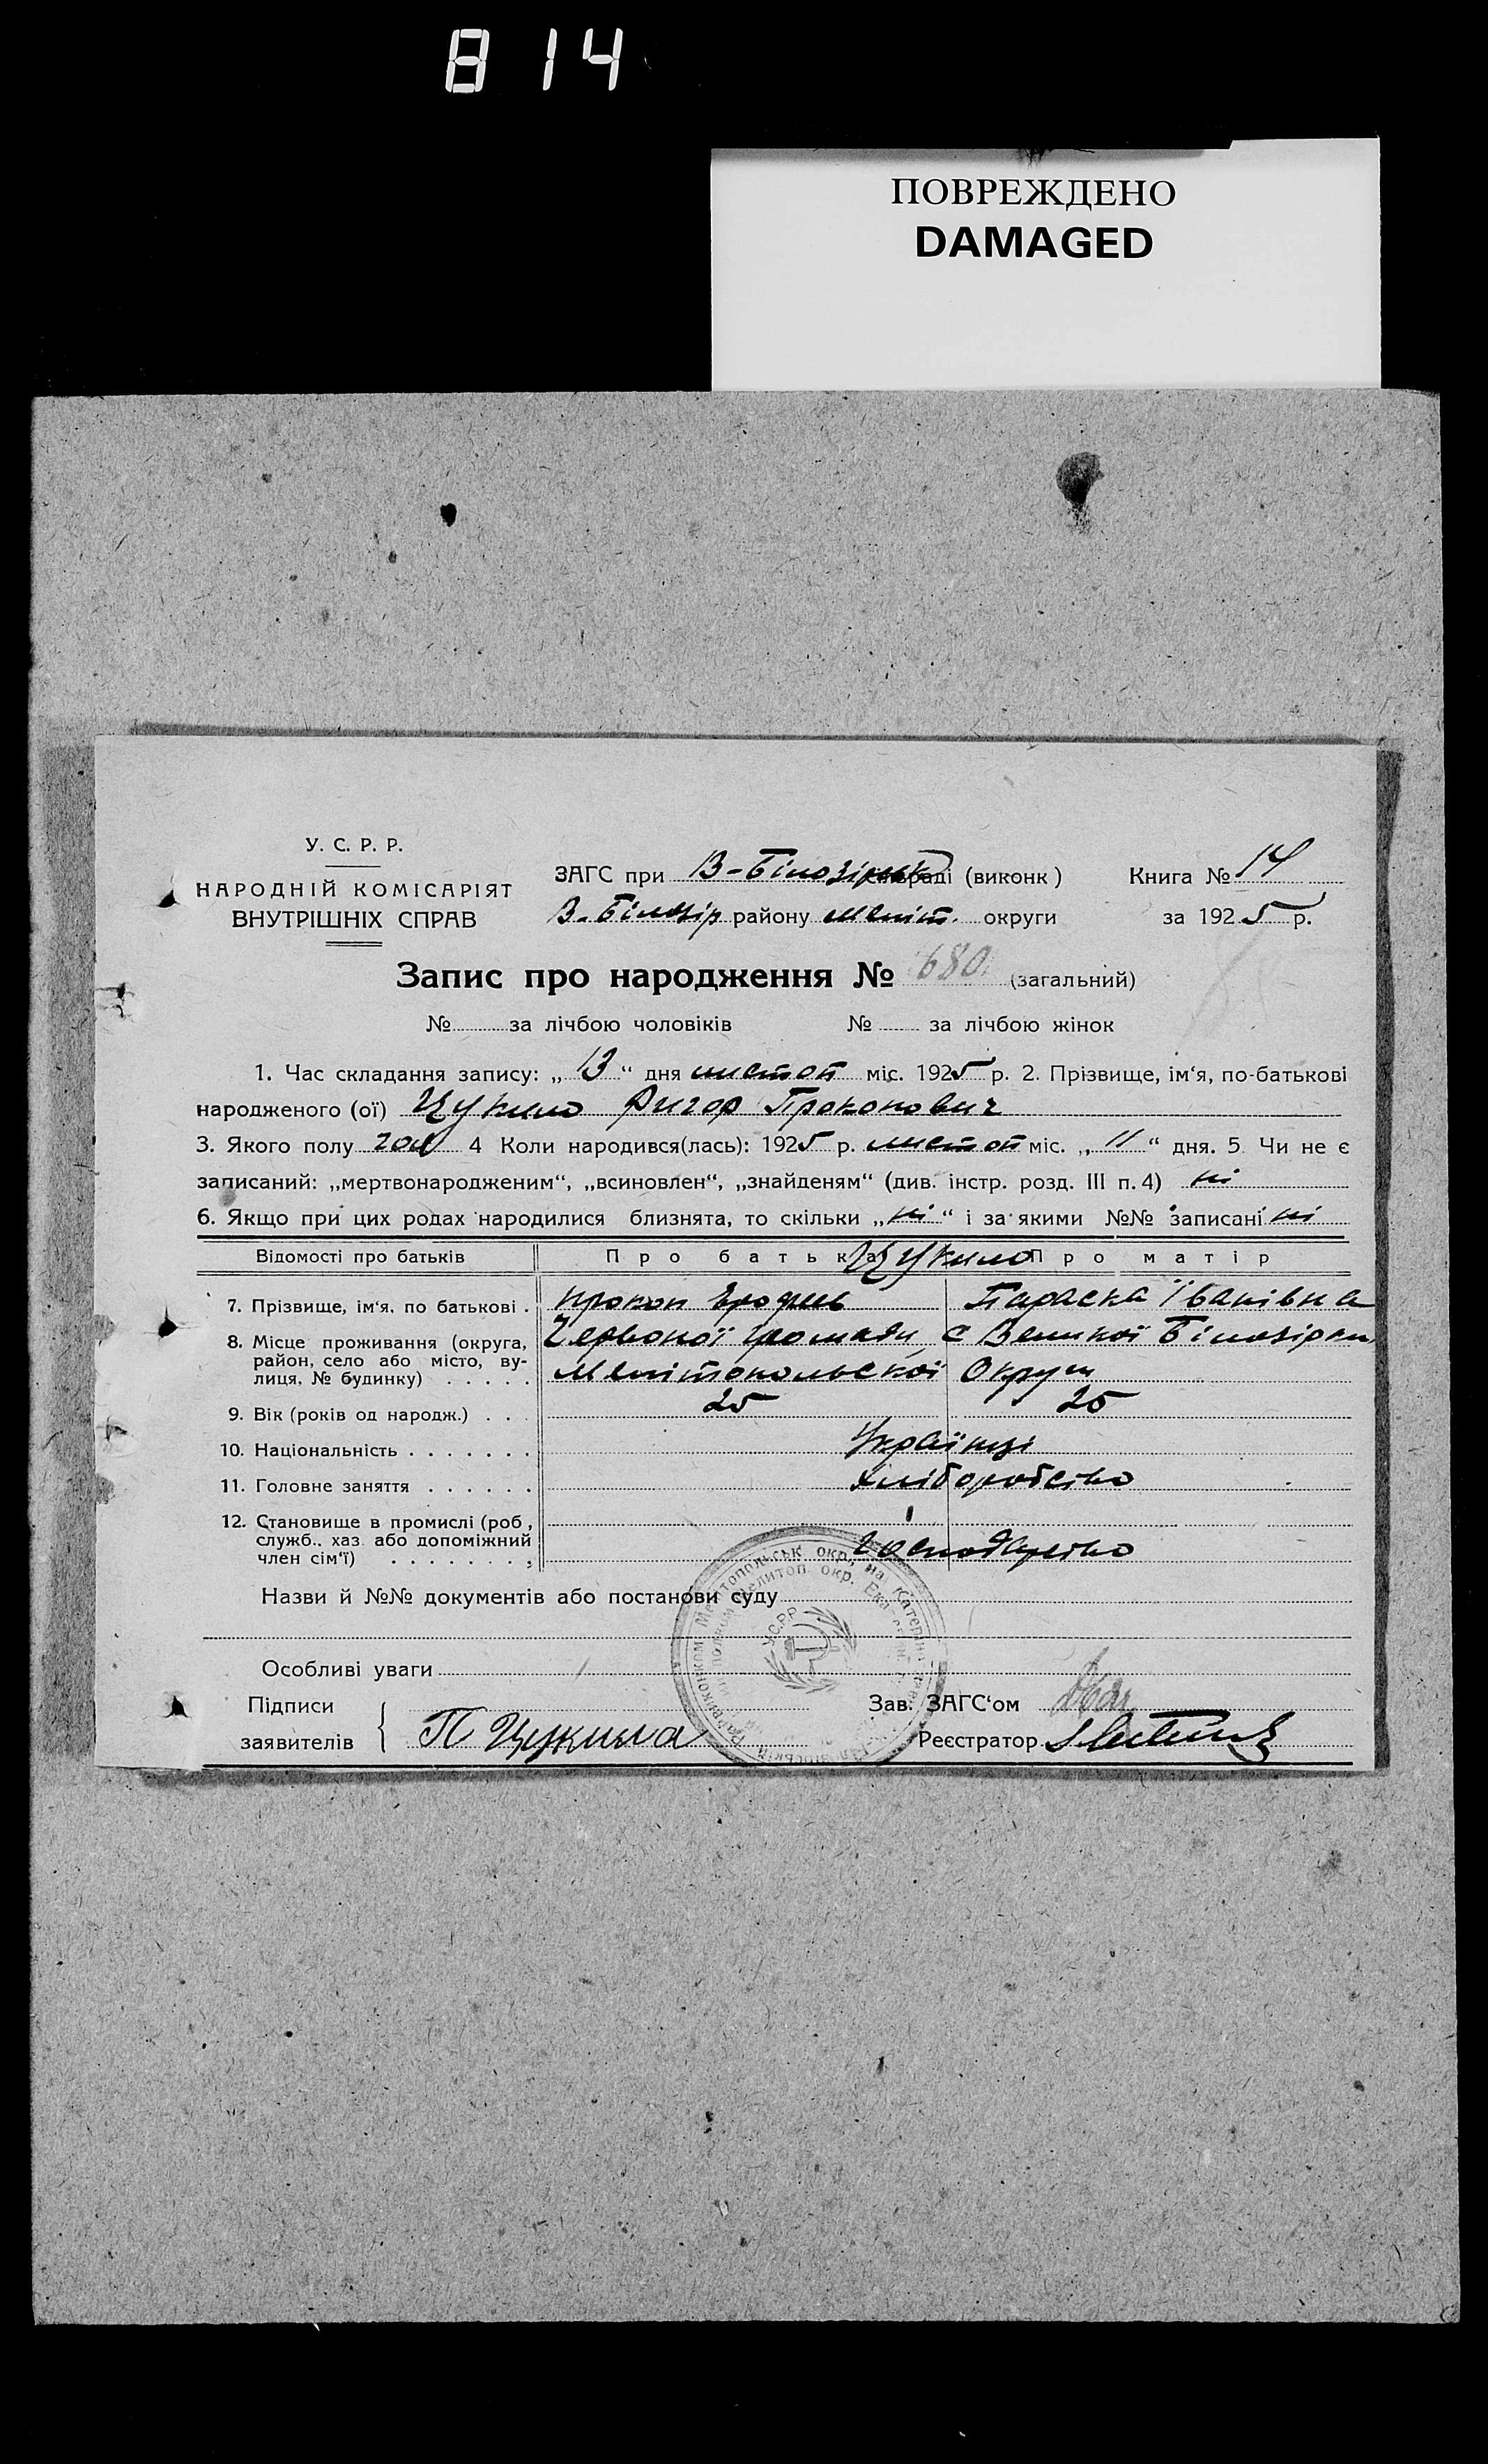 814
ПОВРЕЖДЕНО
DAMAGED
У. С. Р. Р.
НАРОДНІЙ КОМІСАРІЯТ
ВНУТРІШНІХ СПРАВ
ЗАГС при В-Білозірській раді (виконк)
Книга № 14
В-Білозір району Меліт. округи
за 1925 р.
Запис про народження № 680 (загальний)
№ за лічбою чоловіків № за лічбою жінок
1. Час складання запису: „13“ дня листоп міс. 1925 р. 2. Прізвище, ім‘я, по-батькові
народженого (ої) Цукило Григор Прокопович
3. Якого полу чол 4 Коли народився(лась): 1925 р. листоп міс. „11“ дня. 5 Чи не є
записаний: „мертвонародженим“, „всиновлен“, „знайденям“ (див. інстр. розд. III п. 4) ні
6. Якщо при цих родах народилися близнята, то скільки „ні“ і за якими №№ записані ні
Відомості про батьків Про батька Цукило Про матір
7. Прізвище, ім‘я, по батькові . Прокоп Параска Іванівна
8. Місце проживання (округа, Червоної громади с Великої Білозірки
район, село або місто, ву-
лиця, № будинку) . . . . . Мелітопольської Округи
9. Вік (років од народж.) . . . 25 25
10. Національність . . . . . . . Українці
11. Головне заняття . . . . . . Хліборобство
12. Становище в промислі (роб,
служб., хаз. або допоміжний Господарство
член сім‘ї) . . . . . . . .
Назви й №№ документів або постанови суду
У.С.Р.Р.
Особливі уваги
Підписи
заявителів
П Цукила
Зав. ЗАГС‘ом
Реєстратор